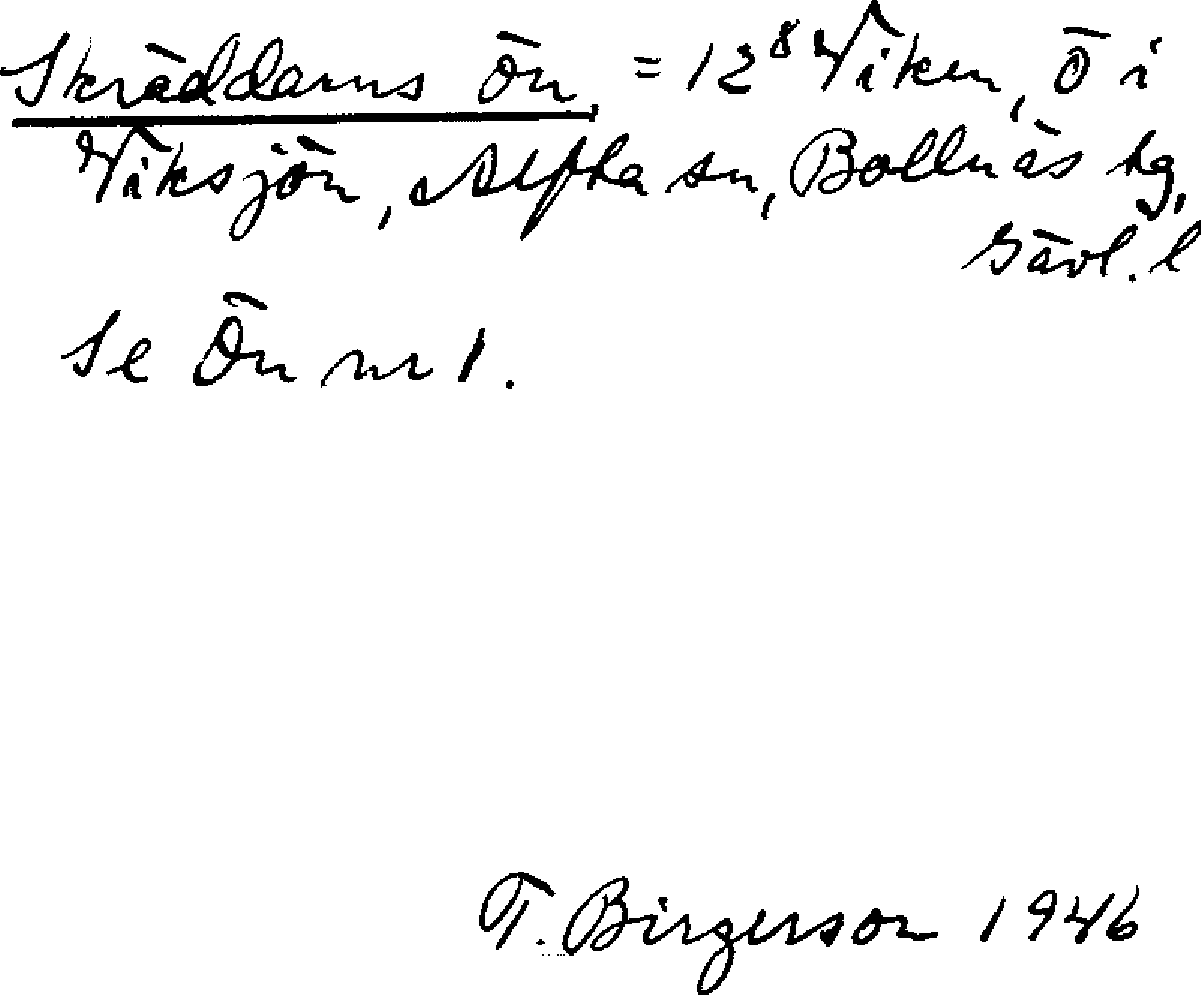 Skräddarns Ön, = 12⁸ Viken, ö i
Viksjön, Alfta sn, Bollnäs tg,
Gävl. l
Se Ön nr 1.
T. Birgerson 1946